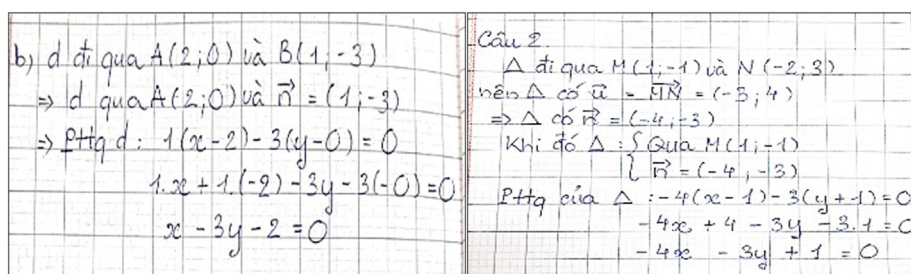 b) d đi qua A(2;0) và B(1;-3)
⇒ d qua A(2;0) và n⃗ = (1;-3)
⇒ PTTq d: 1(x-2)-3(y-0)=0
1.x+1.(-2)-3y-3(-0)=0
x-3y-2=0
Câu 2.
Δ đi qua M(1;-1) và N(-2;3)
nên Δ có u⃗ = MN⃗ = (-3;4)
⇒ Δ có n⃗ = (-4;-3)
Khi đó Δ: { Qua M(1;-1)
{ n⃗ = (-4;-3)
PTTq của Δ: -4(x-1)-3(y+1)=0
-4x+4-3y-3.1=0
-4x-3y+1=0